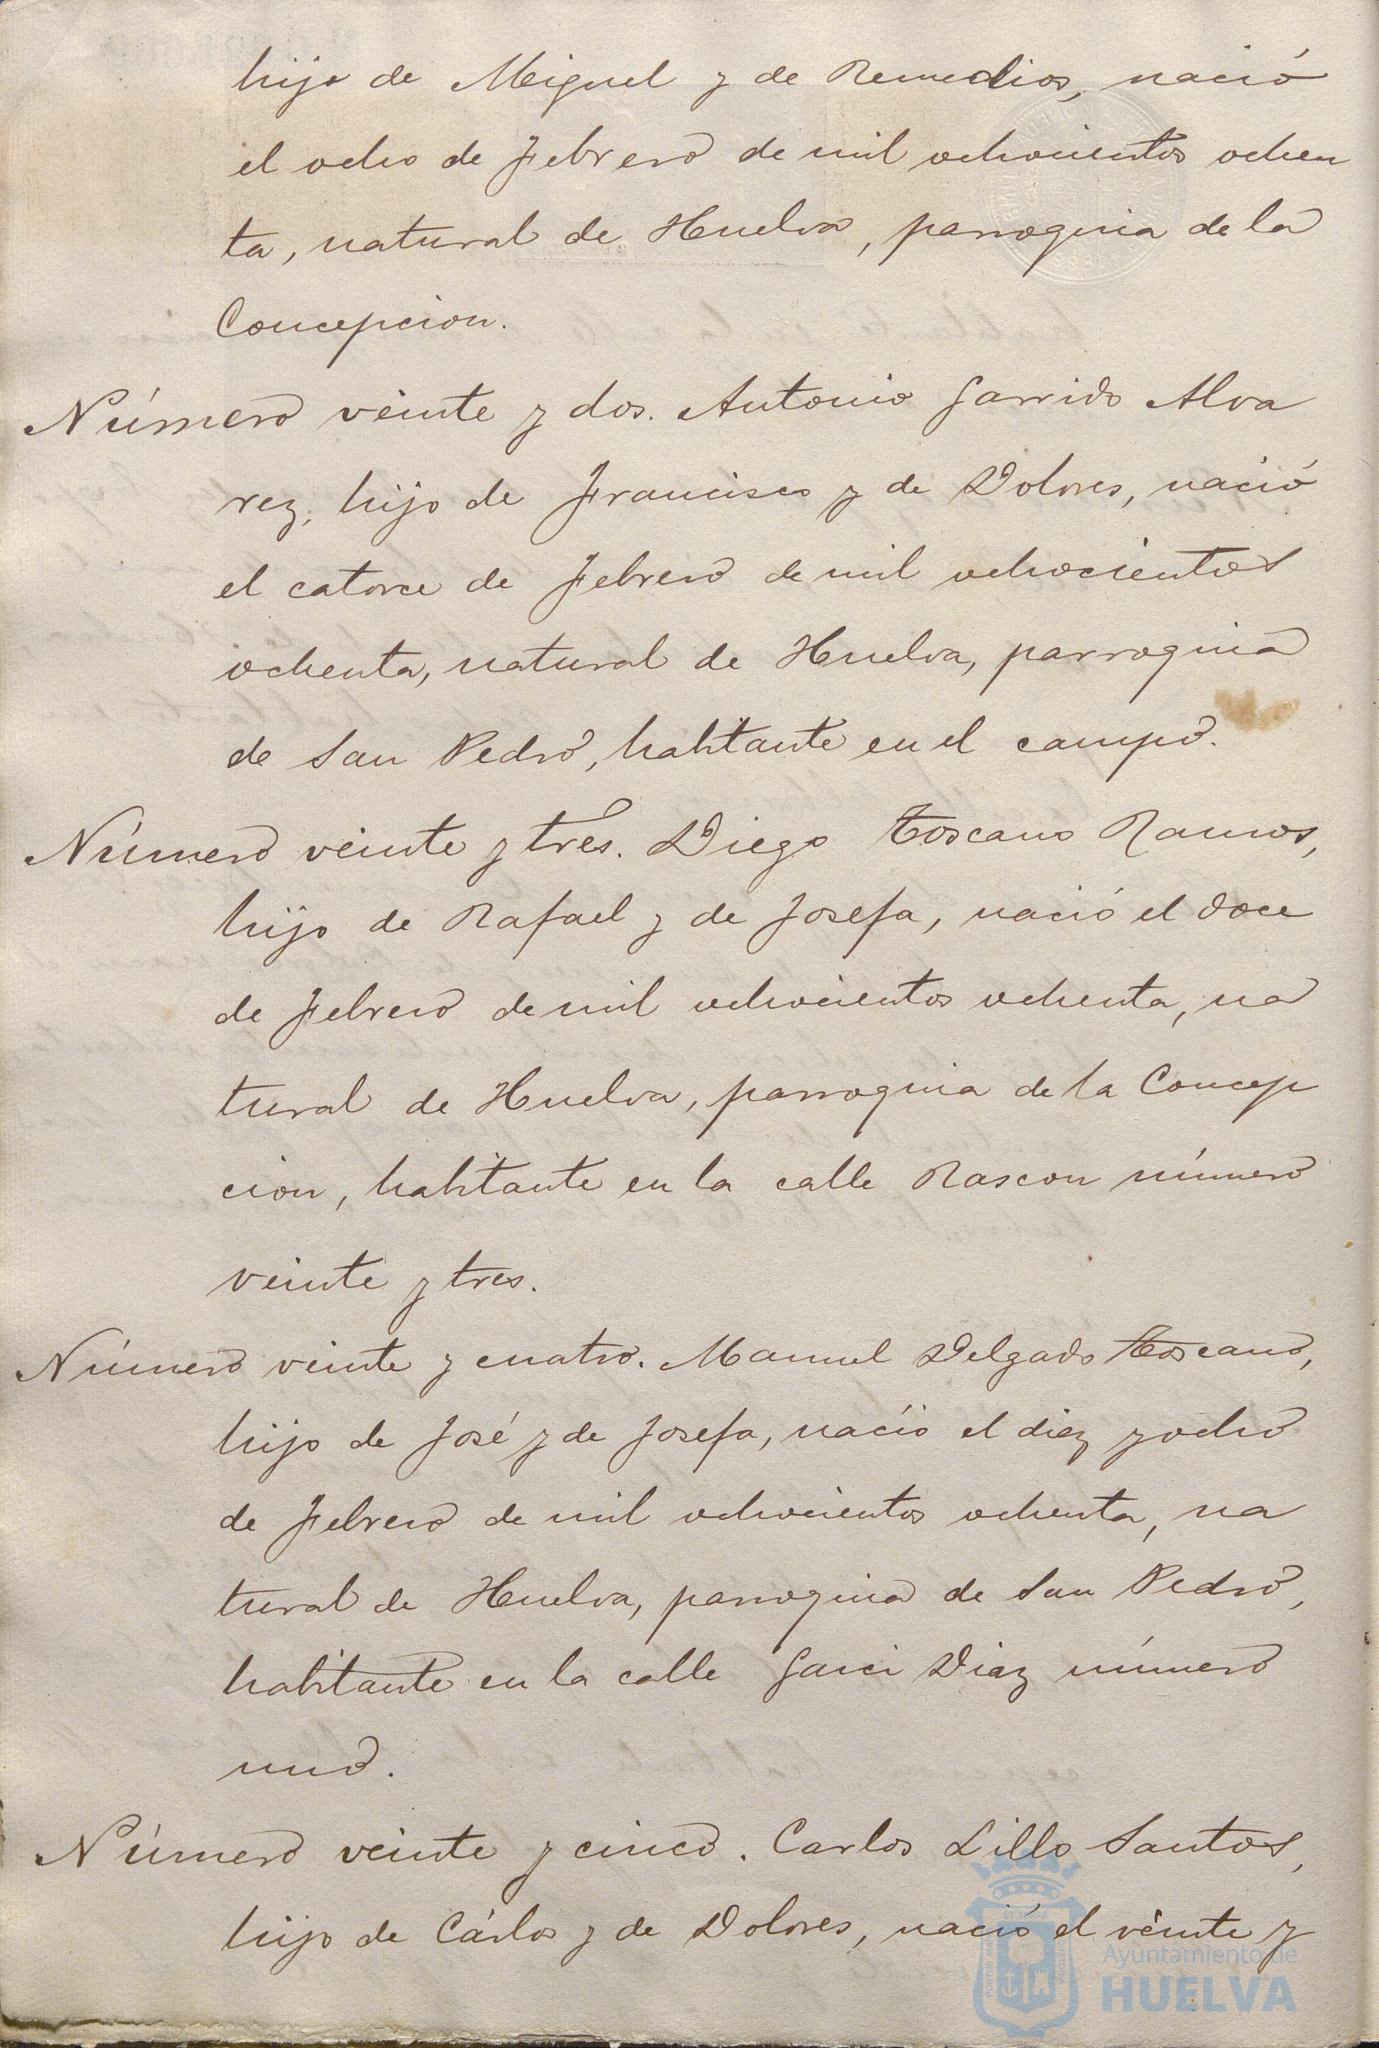 hijo de Miguel y de Remedios, nació
el ocho de Febrero de mil ochocientos ochen
ta, natural de Huelva, parroquia de la
Concepcion.
Número veinte y dos. Antonio Garrido Alva
rez, hijo de Francisco y de Dolores, nació
el catorce de Febrero de mil ochocientos
ochenta, natural de Huelva, parroquia
de San Pedro, habitante en el campo.
Número veinte y tres. Diego Toscano Ramos,
hijo de Rafael y de Josefa, nació el doce
de Febrero de mil ochocientos ochenta, na
tural de Huelva, parroquia de la Concep
cion, habitante en la calle Rascon número
veinte y tres.
Número veinte y cuatro. Manuel Delgado Toscano,
hijo de José y de Josefa, nació el diez y ocho
de Febrero de mil ochocientos ochenta, na
tural de Huelva, parroquia de San Pedro,
habitante en la calle Garci Diaz número
uno.
Número veinte y cinco. Carlos Lillo Santos,
hijo de Cárlos y de Dolores, nació el veinte y
Ayuntamiento de
HUELVA